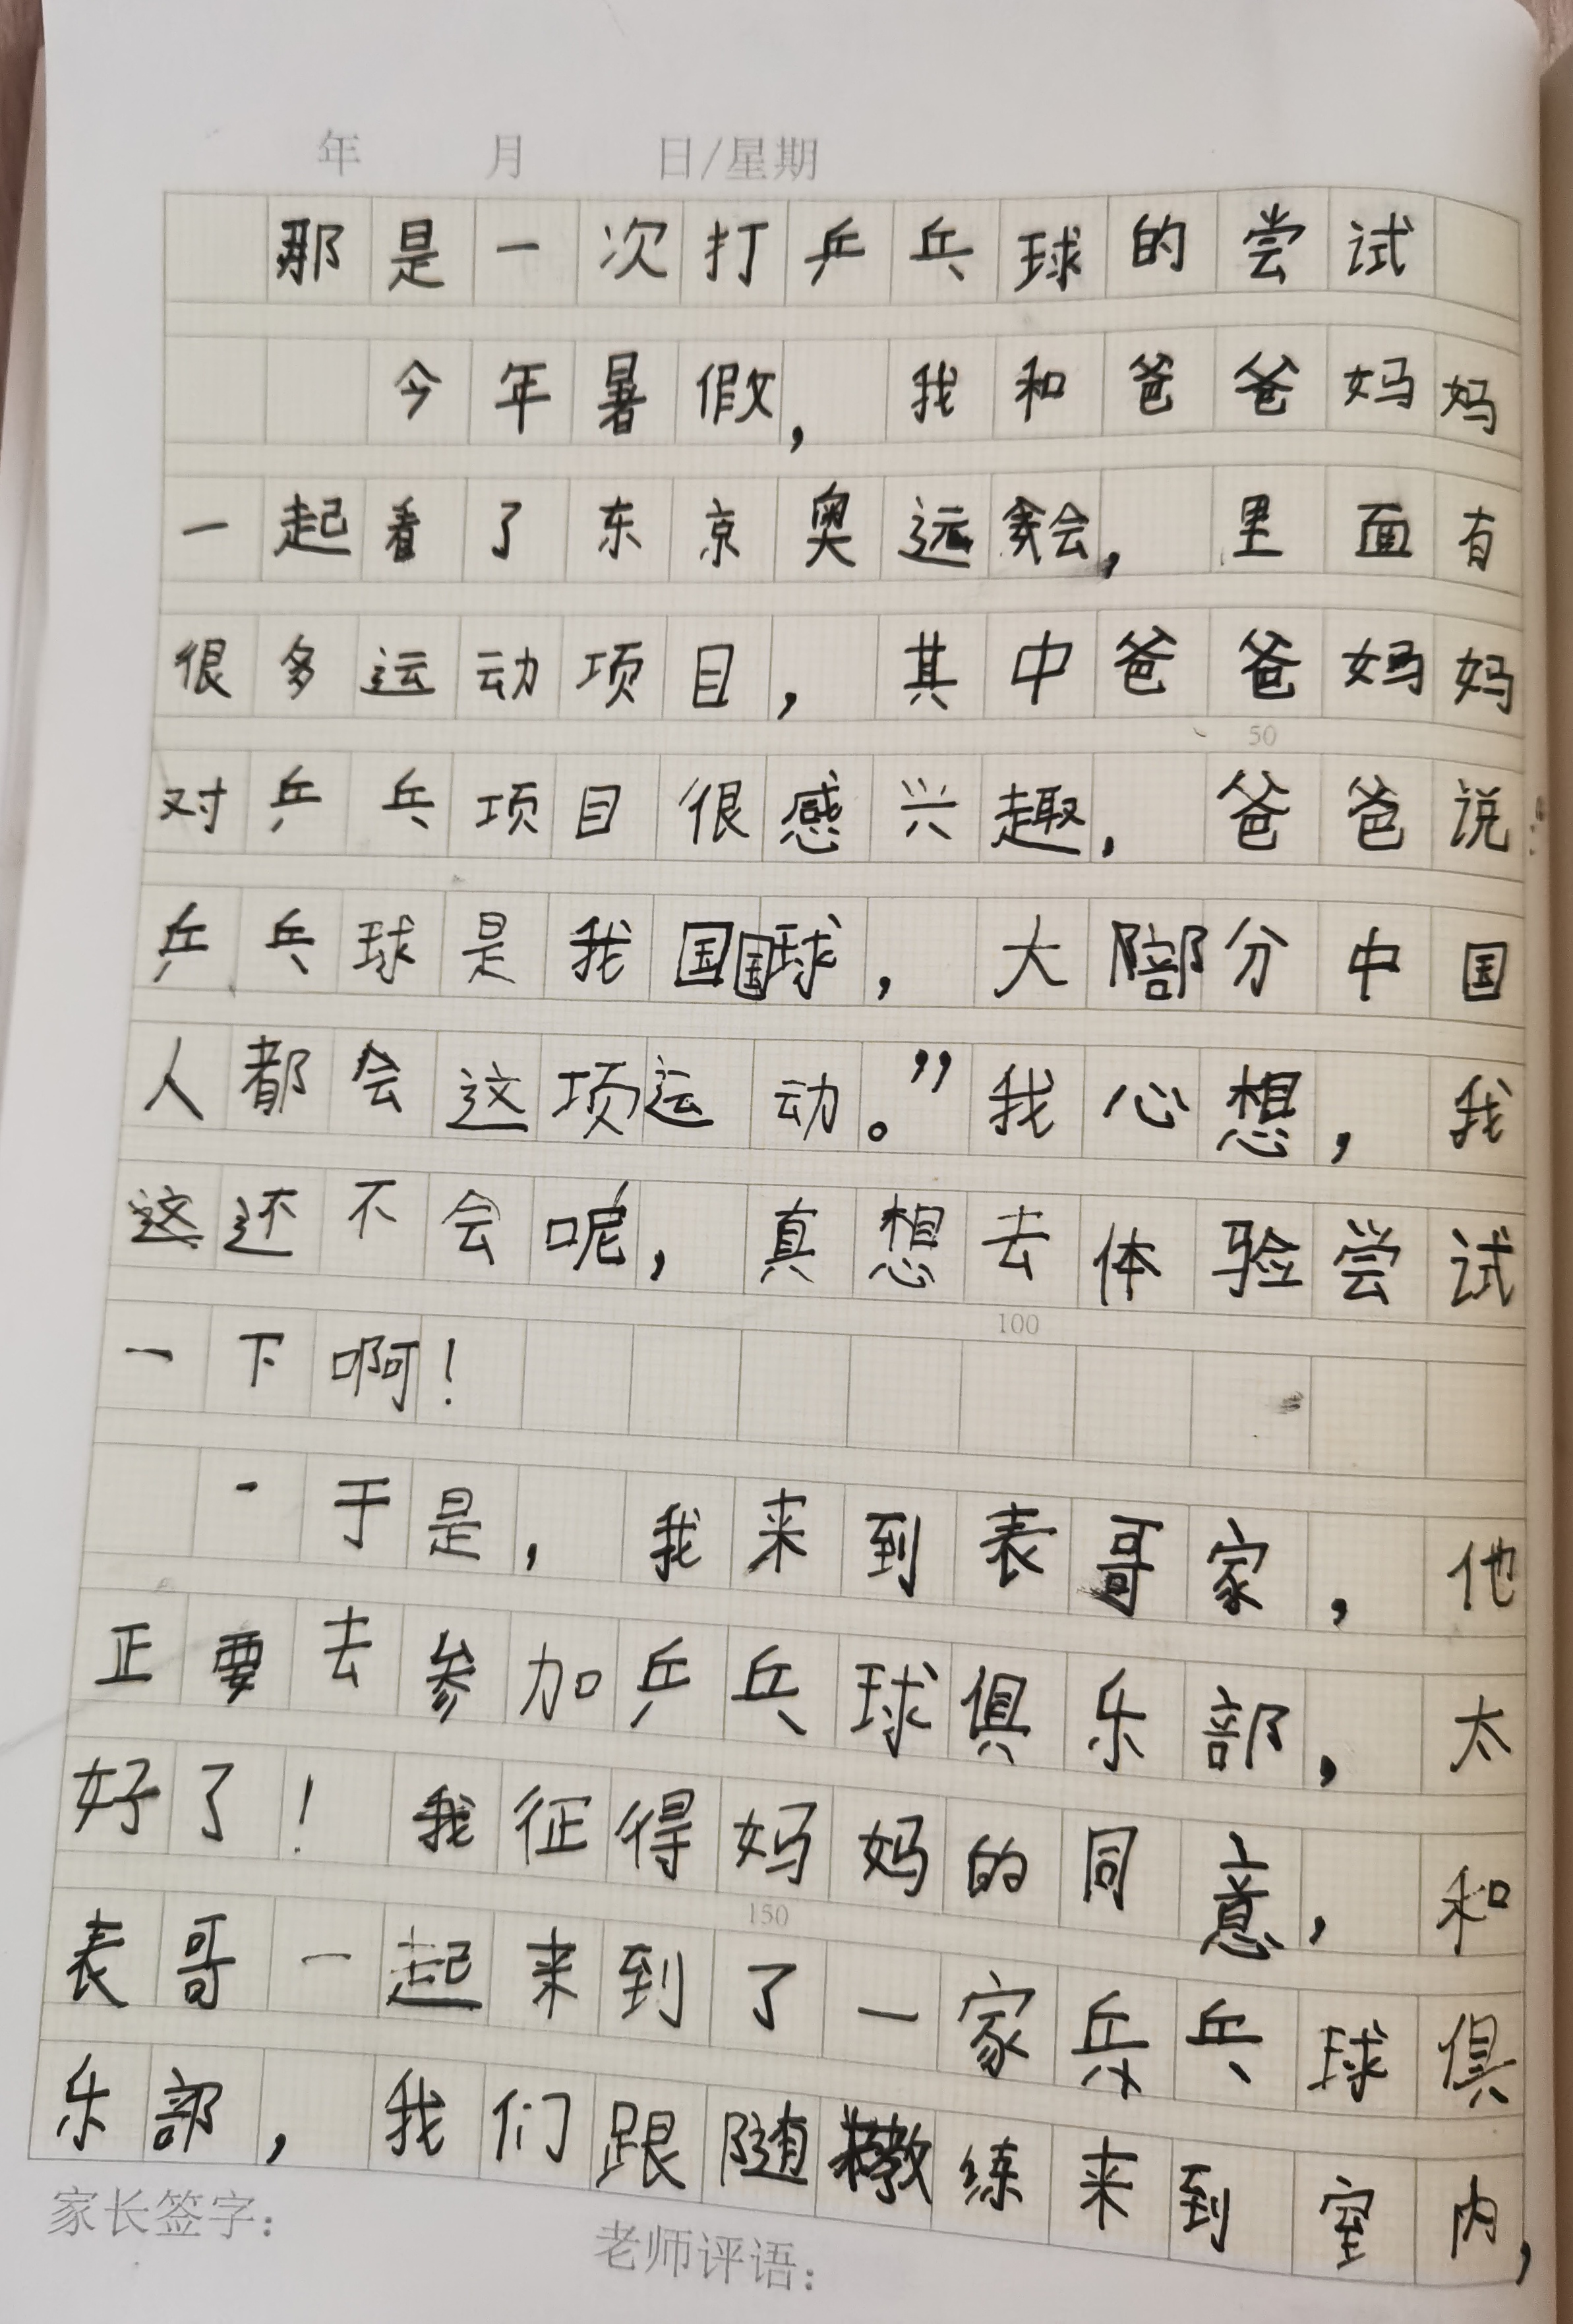 年 月 日/星期
那是一次打乒乓球的尝试
今年暑假，我和爸爸妈妈
一起看了东京奥远会，里面有
很多运动项目，其中爸爸妈妈
对乒乓项目很感兴趣，爸爸说：
乒乓球是我国国球，大部分中国
人都会这项运动。”我心想，我
这还不会呢，真想去体验尝试
50
一下啊！
100
于是，我来到表哥家，他
正要去参加乒乓球俱乐部，太
好了！我征得妈妈的同意，和
150
表哥一起来到了一家乒乓球俱
乐部，我们跟随教练来到室内，
家长签字：
老师评语：